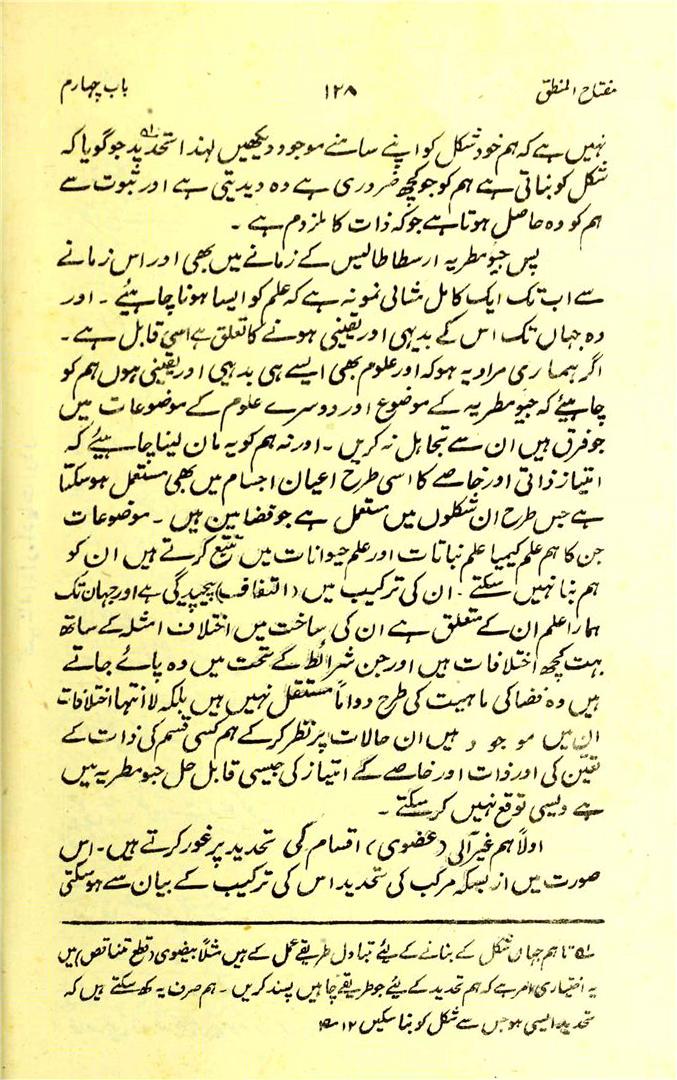 مفتاح المنطق ۱۲۸ باب چہارم
نہیں ہے کہ ہم خود شکل کو اپنے سامنے موجود دیکھیں لہذا تحدید۱؎ جو گویا کہ
شکل کو بناتی ہے ہم کو جو کچھ ضروری ہے وہ دیدیتی ہے اور ثبوت سے
ہم کو وہ حاصل ہوتا ہے جو کہ ذات کا ملزوم ہے ۔
پس جیومطریہ ارسطاطالیس کے زمانے میں بھی اور اس زمانے
سے اب تک ایک کامل مثالی نمونہ ہے کہ علم کو ایسا ہونا چاہئیے ۔ اور
وہ جہاں تک اس کے بدیہی اور یقینی ہونے کا تعلق ہے اسی قابل ہے ۔
اگر ہماری مراد یہ ہو کہ اور علوم بھی ایسے ہی بدیہی اور یقینی ہوں ہم کو
چاہیئے کہ جیومطریہ کے موضوع اور دوسرے علوم کے موضوعات میں
جو فرق ہیں ان سے تجاہل نہ کریں ۔ اور نہ ہم کو یہ مان لینا چاہیئے کہ
امتیاز ذاتی اور خاصے کا اسی طرح اعیان اجسام میں بھی مستعمل ہو سکتا
ہے جس طرح ان شکلوں میں مستعمل ہے جو فضا میں ہیں ۔ موضوعات
جن کا ہم علم کیمیا علم نباتات اور علم حیوانات میں تتبع کرتے ہیں ان کو
ہم بنا نہیں سکتے ۔ ان کی ترکیب میں (التفاف) پیچیدگی ہے اور جہاں تک
ہمارا علم ان کے متعلق ہے ان کی ساخت میں اختلاف امثلہ کے ساتھ
بہت کچھ اختلافات ہیں اور جن شرائط کے تحت میں وہ پائے جاتے
ہیں وہ فضا کی ماہیت کی طرح دواماً مستقل نہیں ہیں بلکہ لا انتہا اختلافات
ان میں موجود ہیں ان حالات پر نظر کر کے ہم کسی قسم کی ذات کے
تعین کی اور ذات اور خاصے کے امتیاز کی جیسی قابل حل جیومطریہ میں
ہے ویسی توقع نہیں کر سکتے ۔
اولاً ہم غیر آلی (عضوی) اقسام کی تحدید پر غور کرتے ہیں ۔ اس
صورت میں از بسکہ مرکب کی تحدید اس کی ترکیب کے بیان سے ہو سکتی
۱؎ تاہم جہاں شکل کے بنانے کے لیئے تبادل طریقے عمل کے ہیں مثلاً بیضوی (قطع متناقص) میں
یہ اختیاری امر ہے کہ ہم تحدید کے لیئے جو طریقے چاہیں پسند کریں ۔ ہم صرف یہ کہہ سکتے ہیں کہ
تحدید ایسی ہو جس سے شکل کو بنا سکیں ۱۲